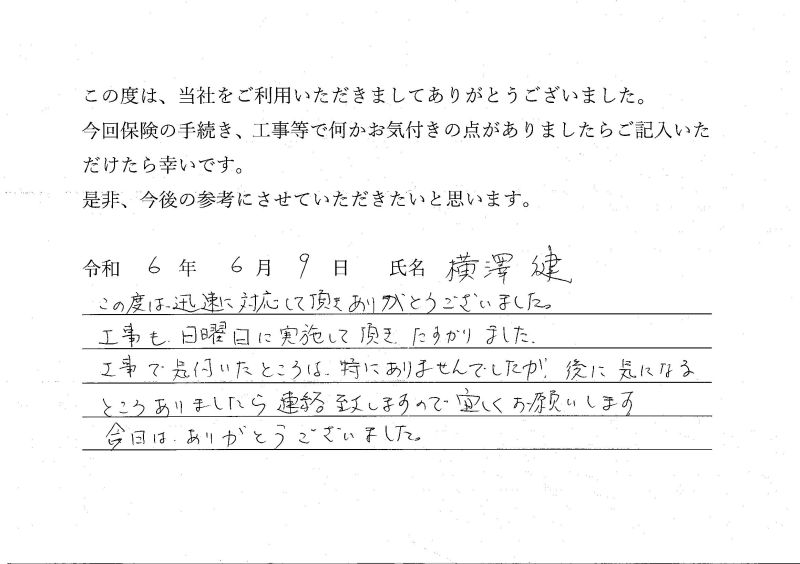 この度は、当社をご利用いただきましてありがとうございました。
今回保険の手続き、工事等で何かお気付きの点がありましたらご記入いた
だけたら幸いです。
是非、今後の参考にさせていただきたいと思います。
令和 6 年 6 月 9 日 氏名 横澤 健
この度は迅速に対応して頂きありがとうございました。
工事も日曜日に実施して頂き たすかりました。
工事で気付いたところは、特にありませんでしたが、後に気になる
ところありましたら連絡致しますので宜しくお願いします
今日は、ありがとうございました。